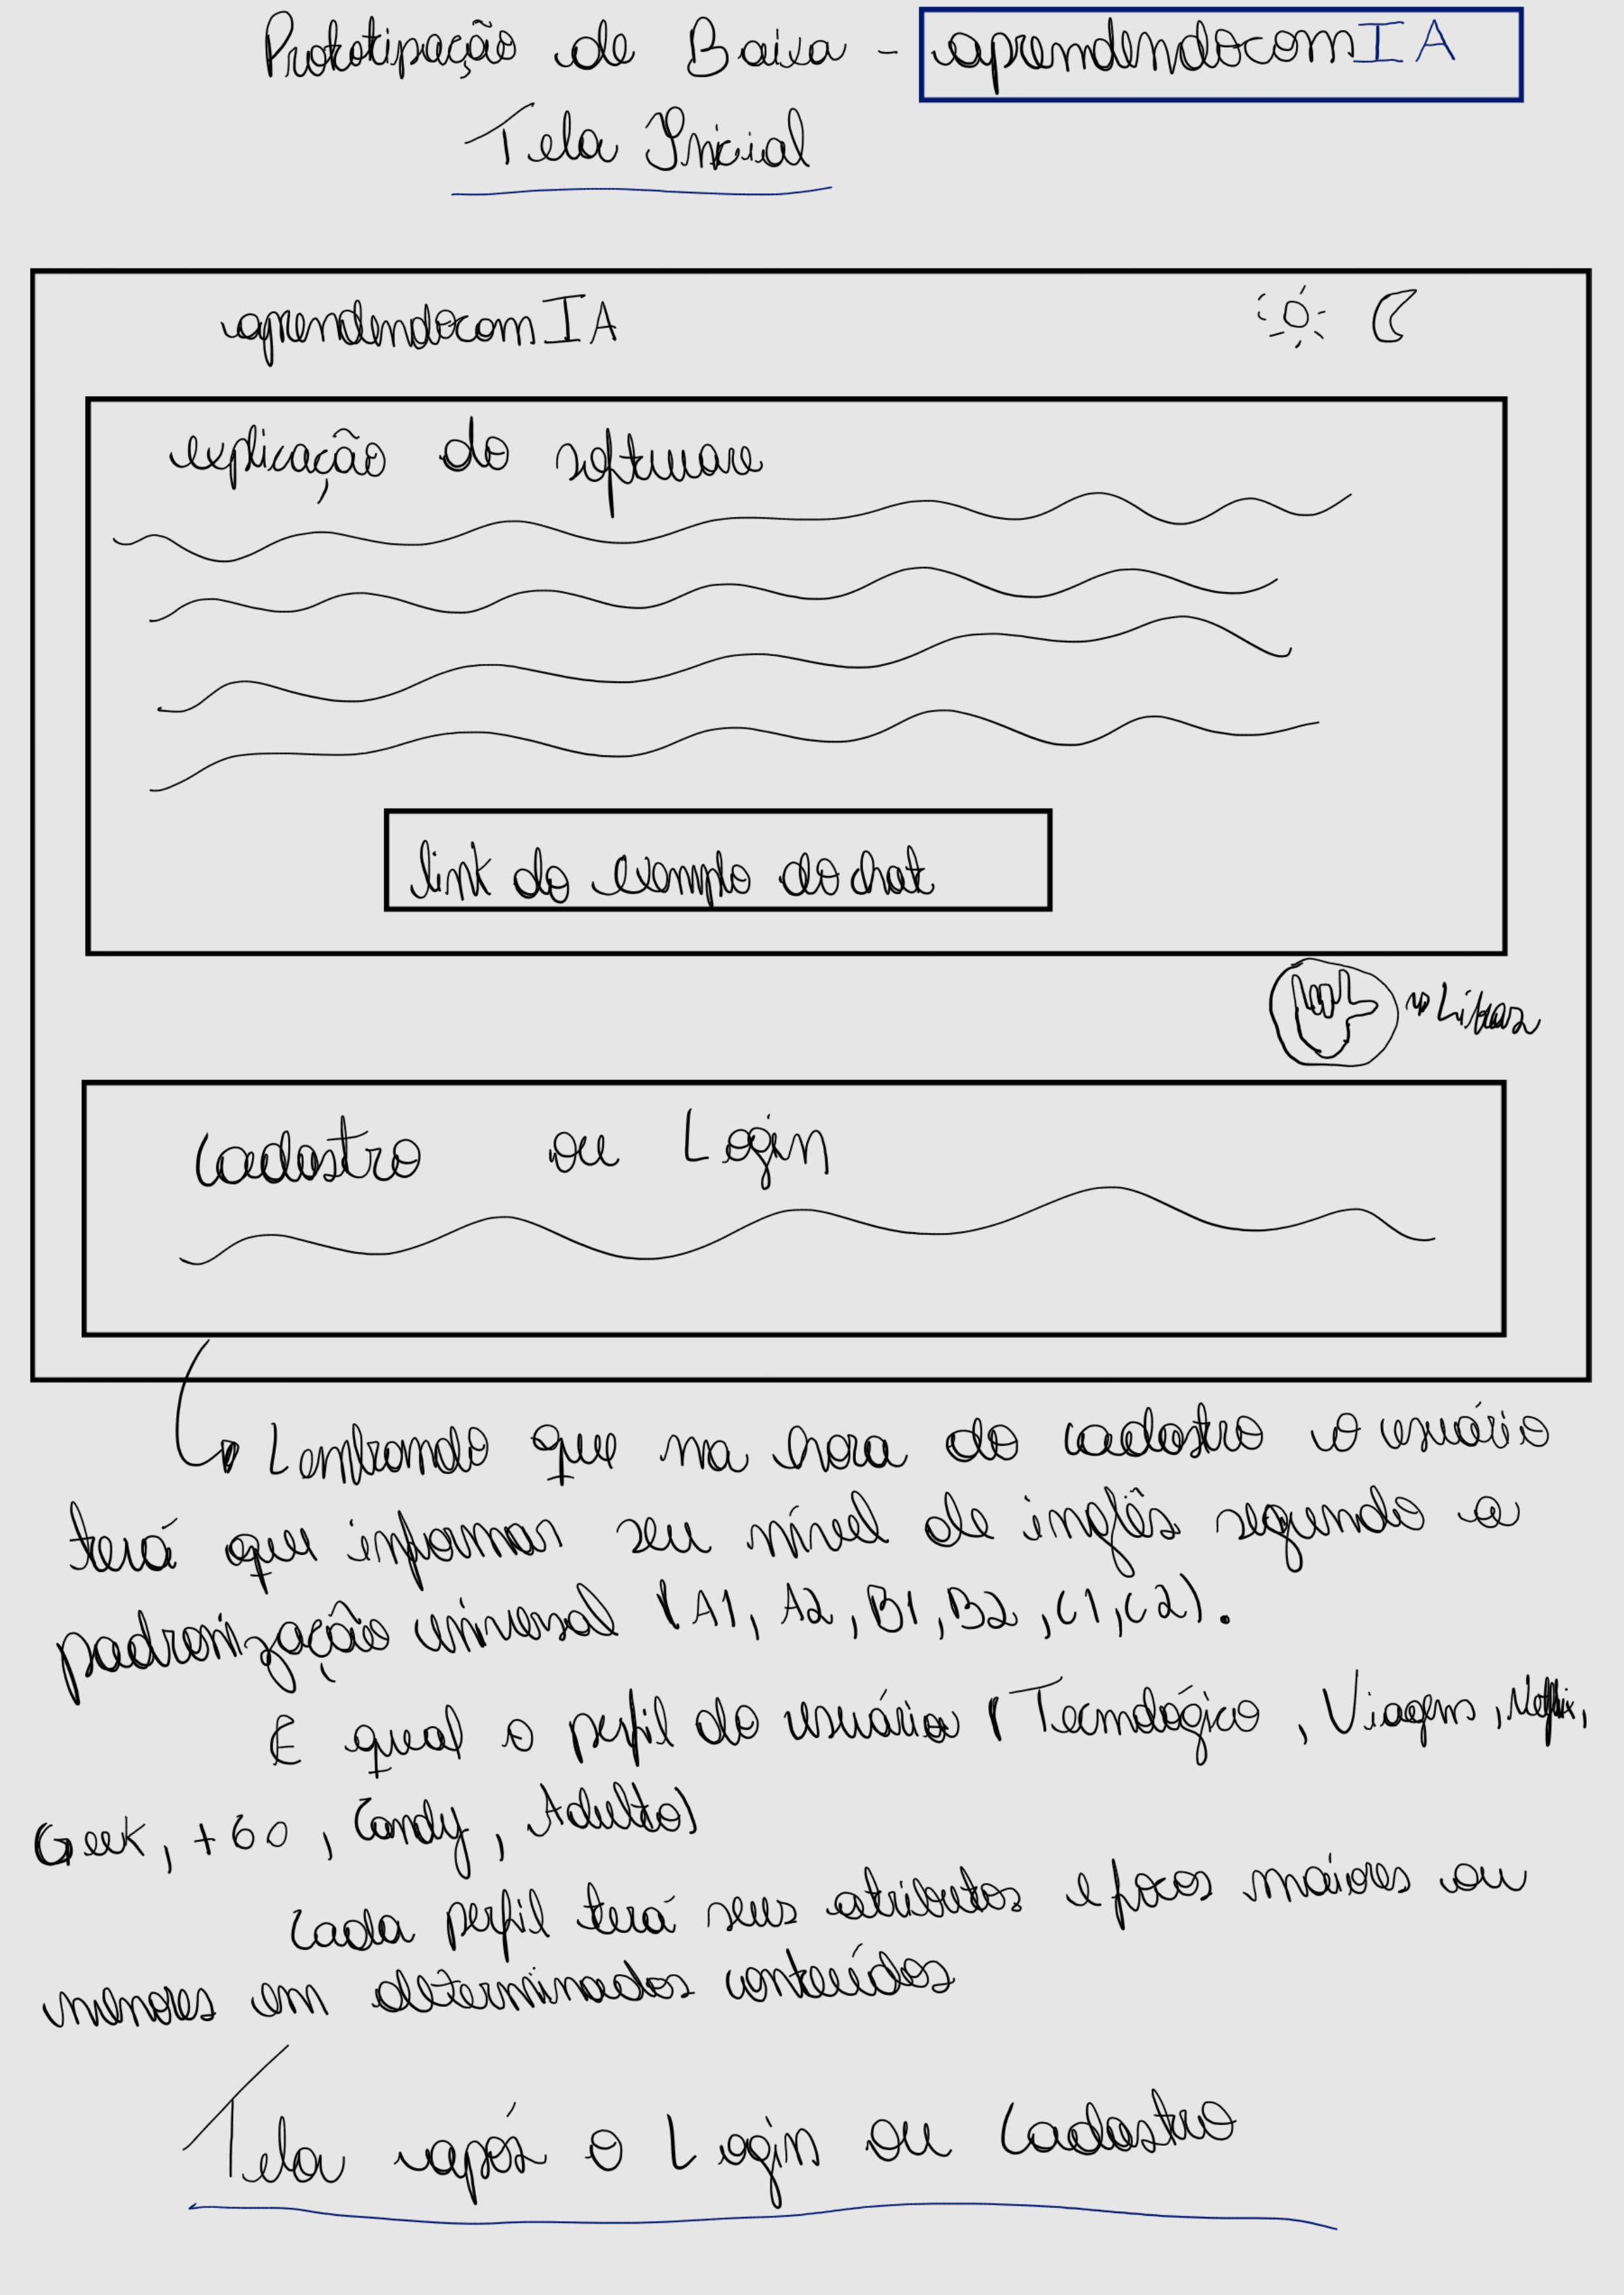 Prototipação de Baixa - aprendendocomIA
Tela Inicial
aprendendocomIA
explicação do software
link do exemplo do chat
Libras
Cadastro ou Login
Lembrando que na hora do cadastro o usuário
terá que informar seu nível de inglês segundo a
padronização universal (A1, A2, B1, B2, C1, C2).
E qual o perfil do usuário (Tecnológico, Viagens, Netflix,
Geek, +60, Candy, Adulto)
Cada perfil terá seus atributos e focos maiores ou
menores em determinados conteúdos
Tela após o Login ou Cadastro